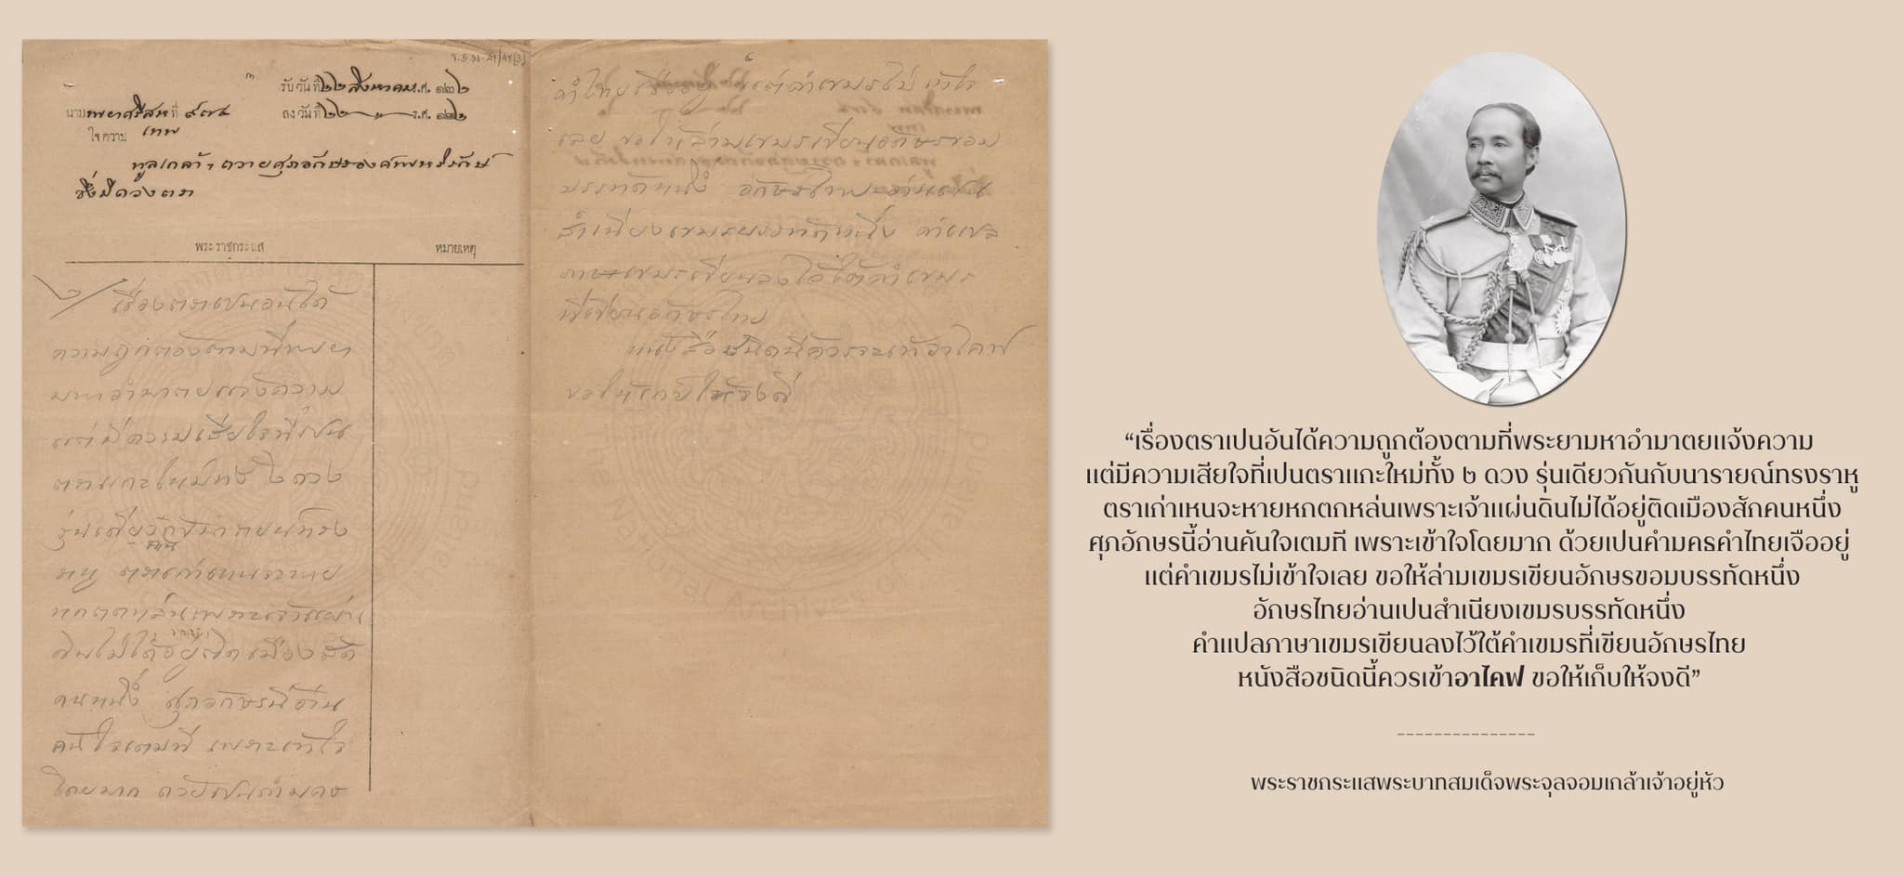 รับวันที่ ๒๒ สิงหาคม ร.ศ. ๑๒๒
นาม พยาศรีสหเทพ ที่ ๙๗๔
ลงวันที่ ๒๒ ร.ศ. ๑๒๒
ใจความ
ทูลเกล้าฯ ถวายศุภอักษรองค์พหริรักษ์
ซึ่งมีดวงตรา
พระราชกระแส
หมายเหตุ
เรื่องตราเปนอันได้
ความถูกต้องตามที่พระยา
มหาอำมาตยแจ้งความ
แต่มีความเสียใจที่เปน
ตราแกะใหม่ทั้ง ๒ ดวง
รุ่นเดียวกันกับนารายณ์ทรง
ราหู ตราเก่าเหนจะหาย
หกตกหล่นเพราะเจ้าแผ่น
ดินไม่ได้อยู่ติดเมืองสัก
คนหนึ่ง ศุภอักษรนี้อ่าน
คันใจเตมที เพราะเข้าใจ
โดยมาก ด้วยเปนคำมคธ
คำไทยเจืออยู่ แต่คำเขมรไม่เข้าใจ
เลย ขอให้ล่ามเขมรเขียนอักษรขอม
บรรทัดหนึ่ง อักษรไทยอ่านเปน
สำเนียงเขมรบรรทัดหนึ่ง คำแปล
ภาษาเขมรเขียนลงไว้ใต้คำเขมร
ที่เขียนอักษรไทย
หนังสือชนิดนี้ควรเข้าอาไคฟ
ขอให้เก็บให้จงดี
“เรื่องตราเปนอันได้ความถูกต้องตามที่พระยามหาอำมาตยแจ้งความ
แต่มีความเสียใจที่เปนตราแกะใหม่ทั้ง ๒ ดวง รุ่นเดียวกันกับนารายณ์ทรงราหู
ตราเก่าเหนจะหายหกตกหล่นเพราะเจ้าแผ่นดินไม่ได้อยู่ติดเมืองสักคนหนึ่ง
ศุภอักษรนี้อ่านคันใจเตมที เพราะเข้าใจโดยมาก ด้วยเปนคำมครคำไทยเจืออยู่
แต่คำเขมรไม่เข้าใจเลย ขอให้ล่ามเขมรเขียนอักษรขอมบรรทัดหนึ่ง
อักษรไทยอ่านเปนสำเนียงเขมรบรรทัดหนึ่ง
คำแปลภาษาเขมรเขียนลงไว้ใต้คำเขมรที่เขียนอักษรไทย
หนังสือชนิดนี้ควรเข้าอาไคฟ ขอให้เก็บให้จงดี”
พระราชกระแสพระบาทสมเด็จพระจุลจอมเกล้าเจ้าอยู่หัว